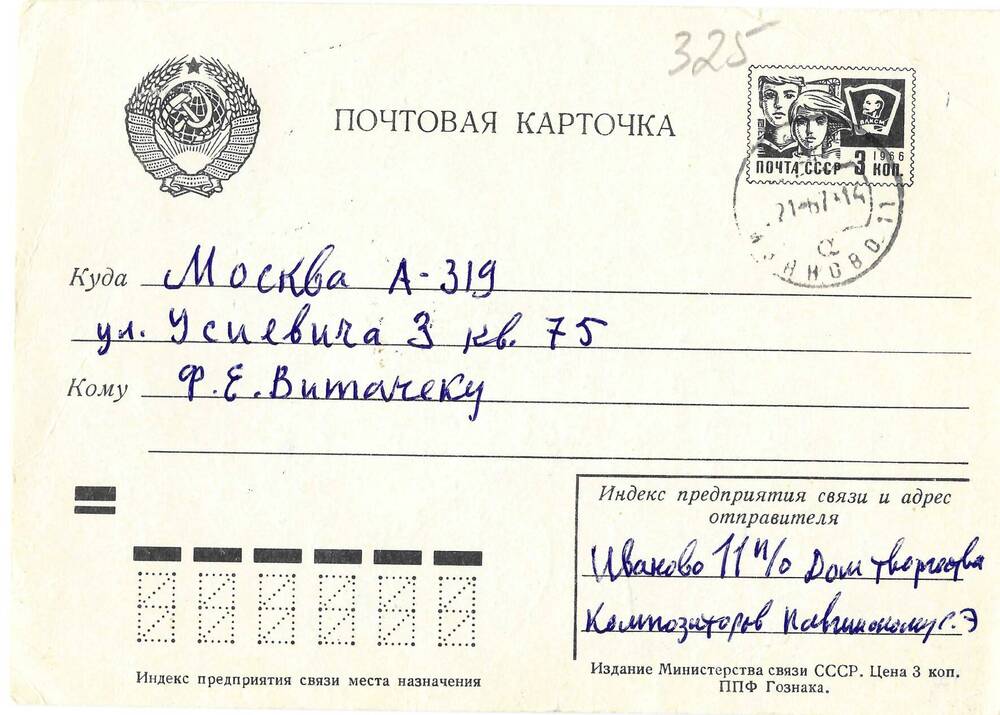 325
ПОЧТОВАЯ КАРТОЧКА
ВЛКСМ
1966
ПОЧТА СССР 3 КОП.
ИВАНОВО 11
Куда Москва А-319
ул. Усиевича 3 кв. 75
Кому Ф.Е. Витачеку
Индекс предприятия связи и адрес
отправителя
Иваново 11 п/о Дом творчества
Композиторов
Индекс предприятия связи места назначения
Издание Министерства связи СССР. Цена 3 коп.
ППФ Гознака.